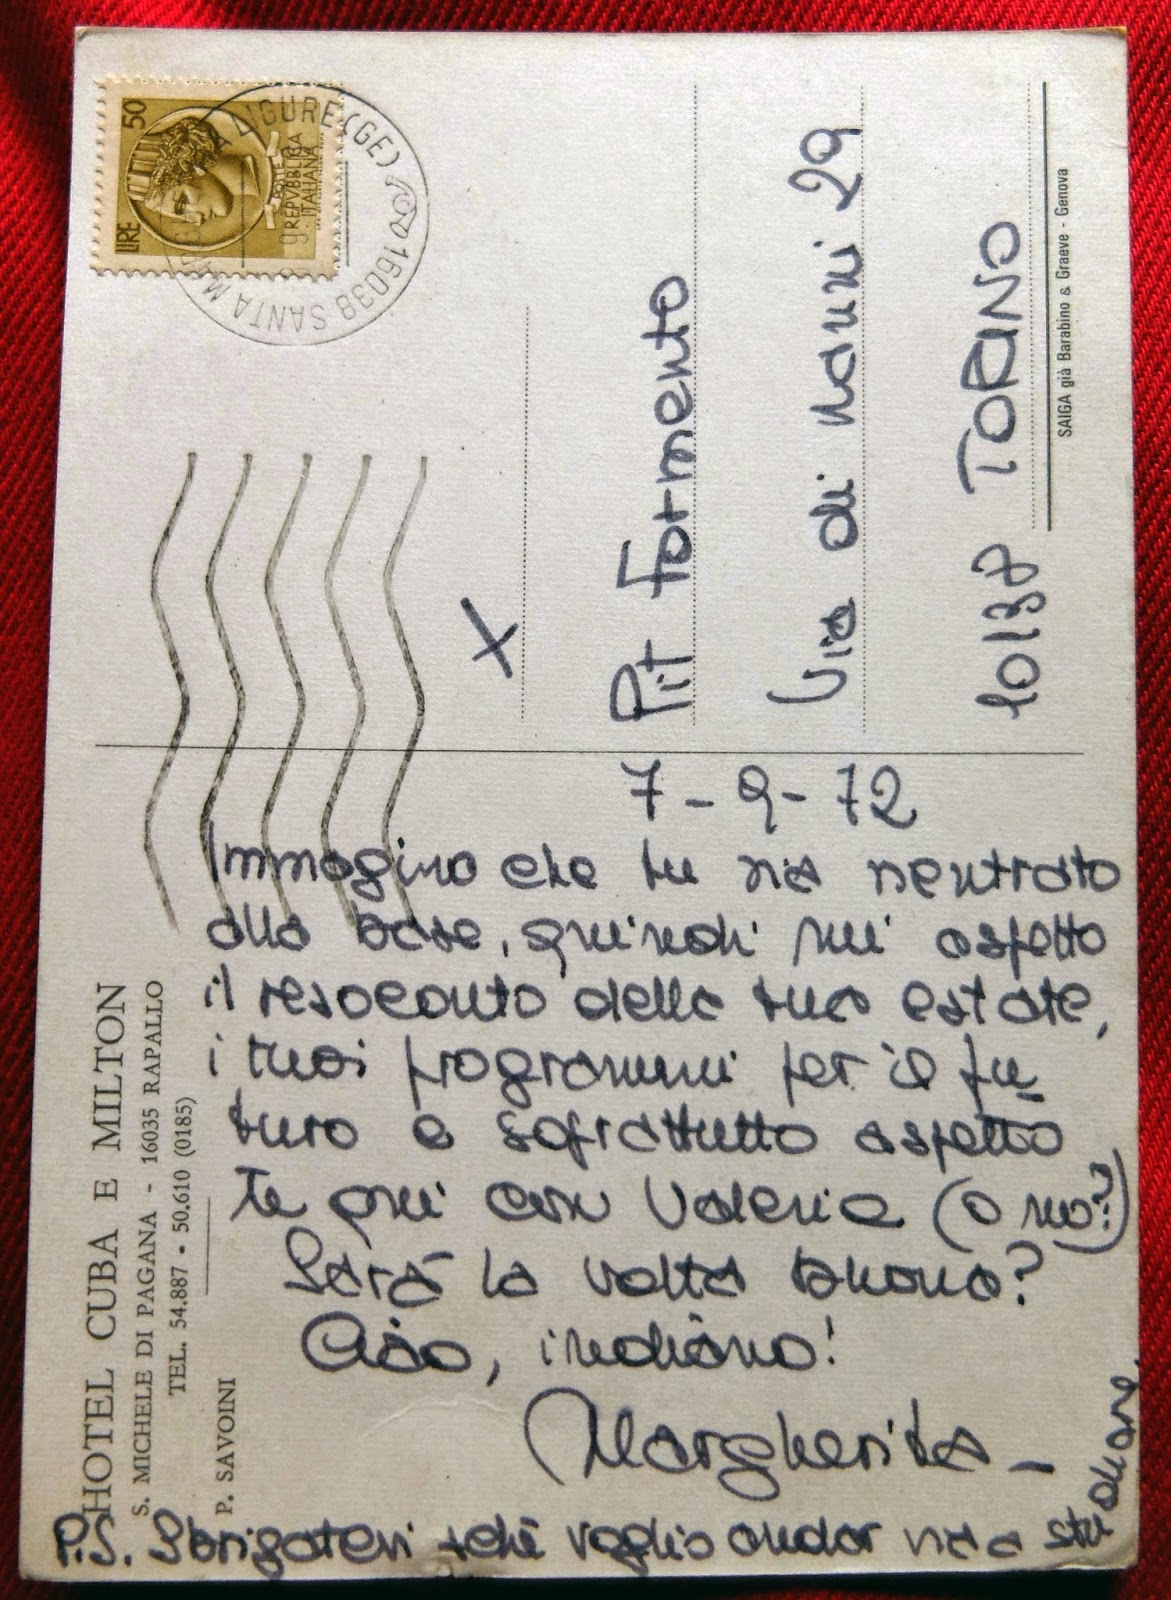 HOTEL CUBA E MILTON
S. MICHELE DI PAGANA - 16035 RAPALLO
TEL. 54.887 - 50.610 (0185)
P. SAVOINI
7-9-72
Immagino che tu sia rientrato
alla base, quindi mi aspetto
il resoconto della tua estate,
i tuoi programmi per il fu
turo e soprattutto aspetto
te qui con Valeria (o no?)
Sarà la volta buona?
Ciao, indiano!
Margherita -
P.S. Sbrigatevi +chè voglio andar via a stu
diare.
LIRE 50
REPVBBLICA
ITALIANA
16038 SANTA MARGHERITA LIGURE (GE)
X
Pit Formento
Via di Nanni 29
10138 TORINO
SAIGA già Barabino & Graeve - Genova